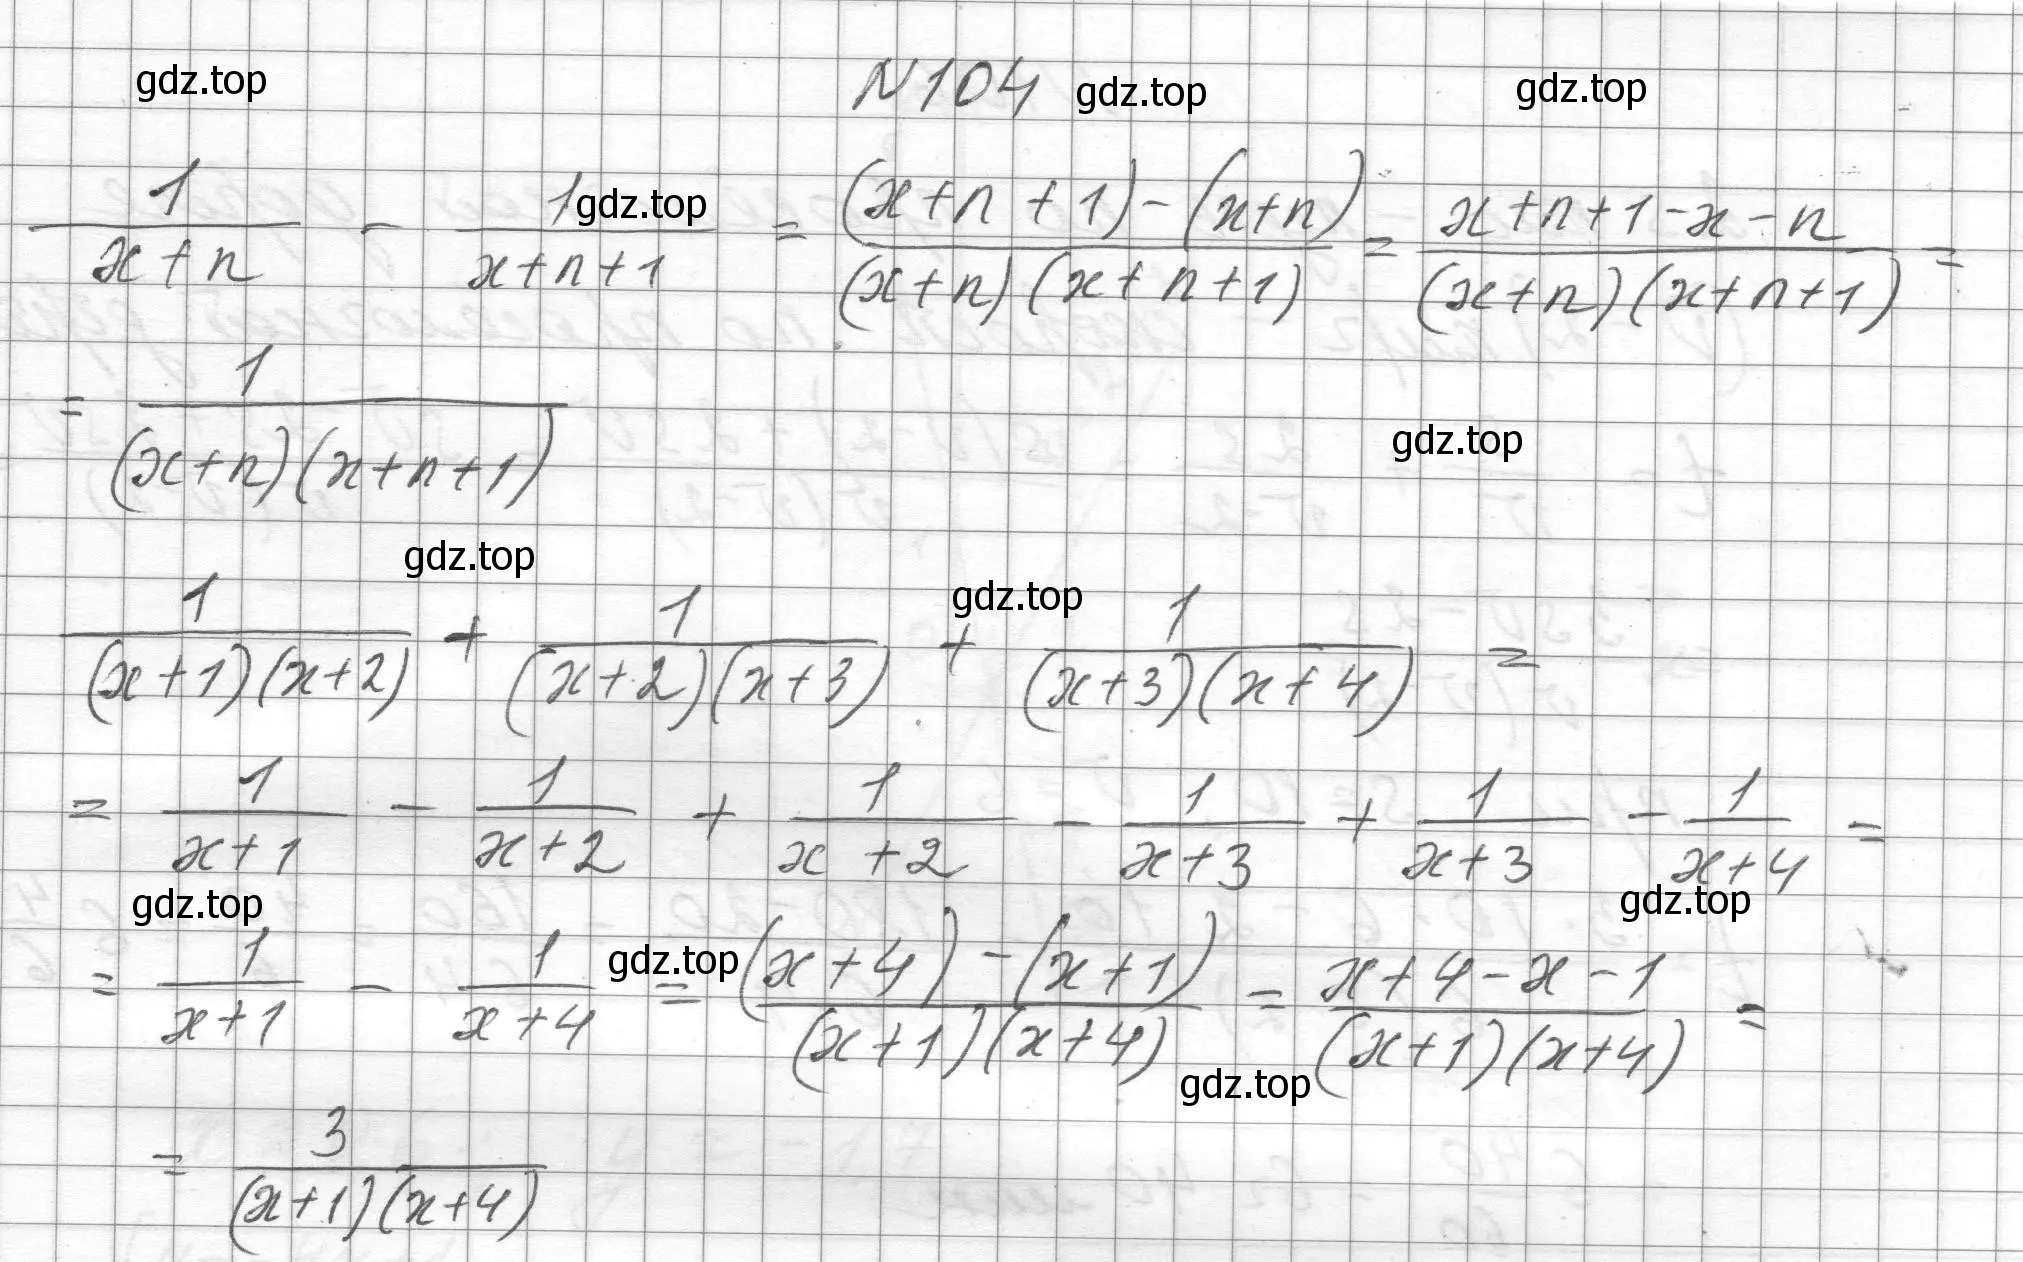 gdz.top №104 gdz.top gdz.top
1/(x+n) - 1/(x+n+1) = ((x+n+1)-(x+n))/((x+n)(x+n+1)) = (x+n+1-x-n)/((x+n)(x+n+1)) =
gdz.top
= 1/((x+n)(x+n+1))
gdz.top
gdz.top gdz.top
1/((x+1)(x+2)) + 1/((x+2)(x+3)) + 1/((x+3)(x+4)) =
= 1/(x+1) - 1/(x+2) + 1/(x+2) - 1/(x+3) + 1/(x+3) - 1/(x+4) =
gdz.top gdz.top
= 1/(x+1) - 1/(x+4) = ((x+4)-(x+1))/((x+1)(x+4)) = (x+4-x-1)/((x+1)(x+4)) =
gdz.top gdz.top
= 3/((x+1)(x+4))